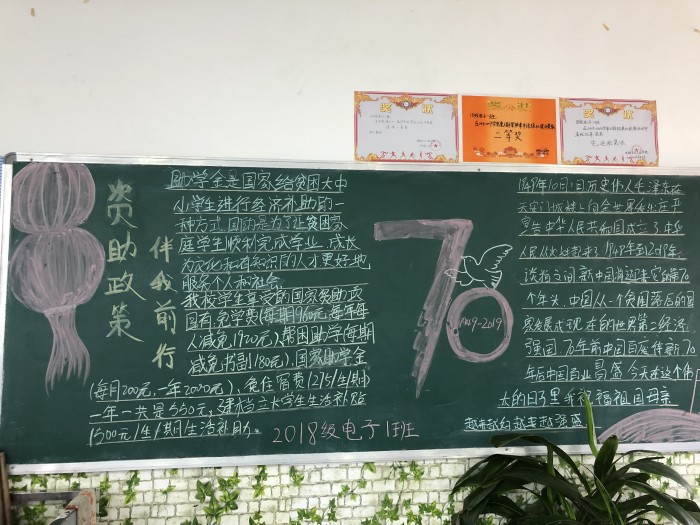 奖 状
奖 状
二等奖
资助政策
伴我前行
助学金是国家给贫困大中
小学生进行经济补助的一
种方式，目的是为了让贫困家
庭学生顺利完成学业，成长
为文化和有知识的人才更好地
服务个人和社会。
我校学生享受的国家资助项
目有免学费(每期960元,每年每
人减免1920元),帮困助学(每期
减免书副180元),国家助学金
(每月200元,一年2000元),免住宿费1275/生/期
一年一共完550元,建档立卡学生生活补贴
1500元/生/期生活补助。
2018级电子1班
70
1949-2019
1949年10月1日历史伟人毛泽东在
天安门城楼上向全世界发出庄严
宣告中华人民共和国成立了中华
人民从此站起来了1949年到2019年,
谈指之间新中国将迎来它的第70
个年头,中国从一个贫困落后的国
家发展成现在的世界第二经济
强国,70年前中国百废待新,70
年后中国百业昌盛,今天在这个伟
大的日子里我祝福祖国母亲
越来越
越来越强盛